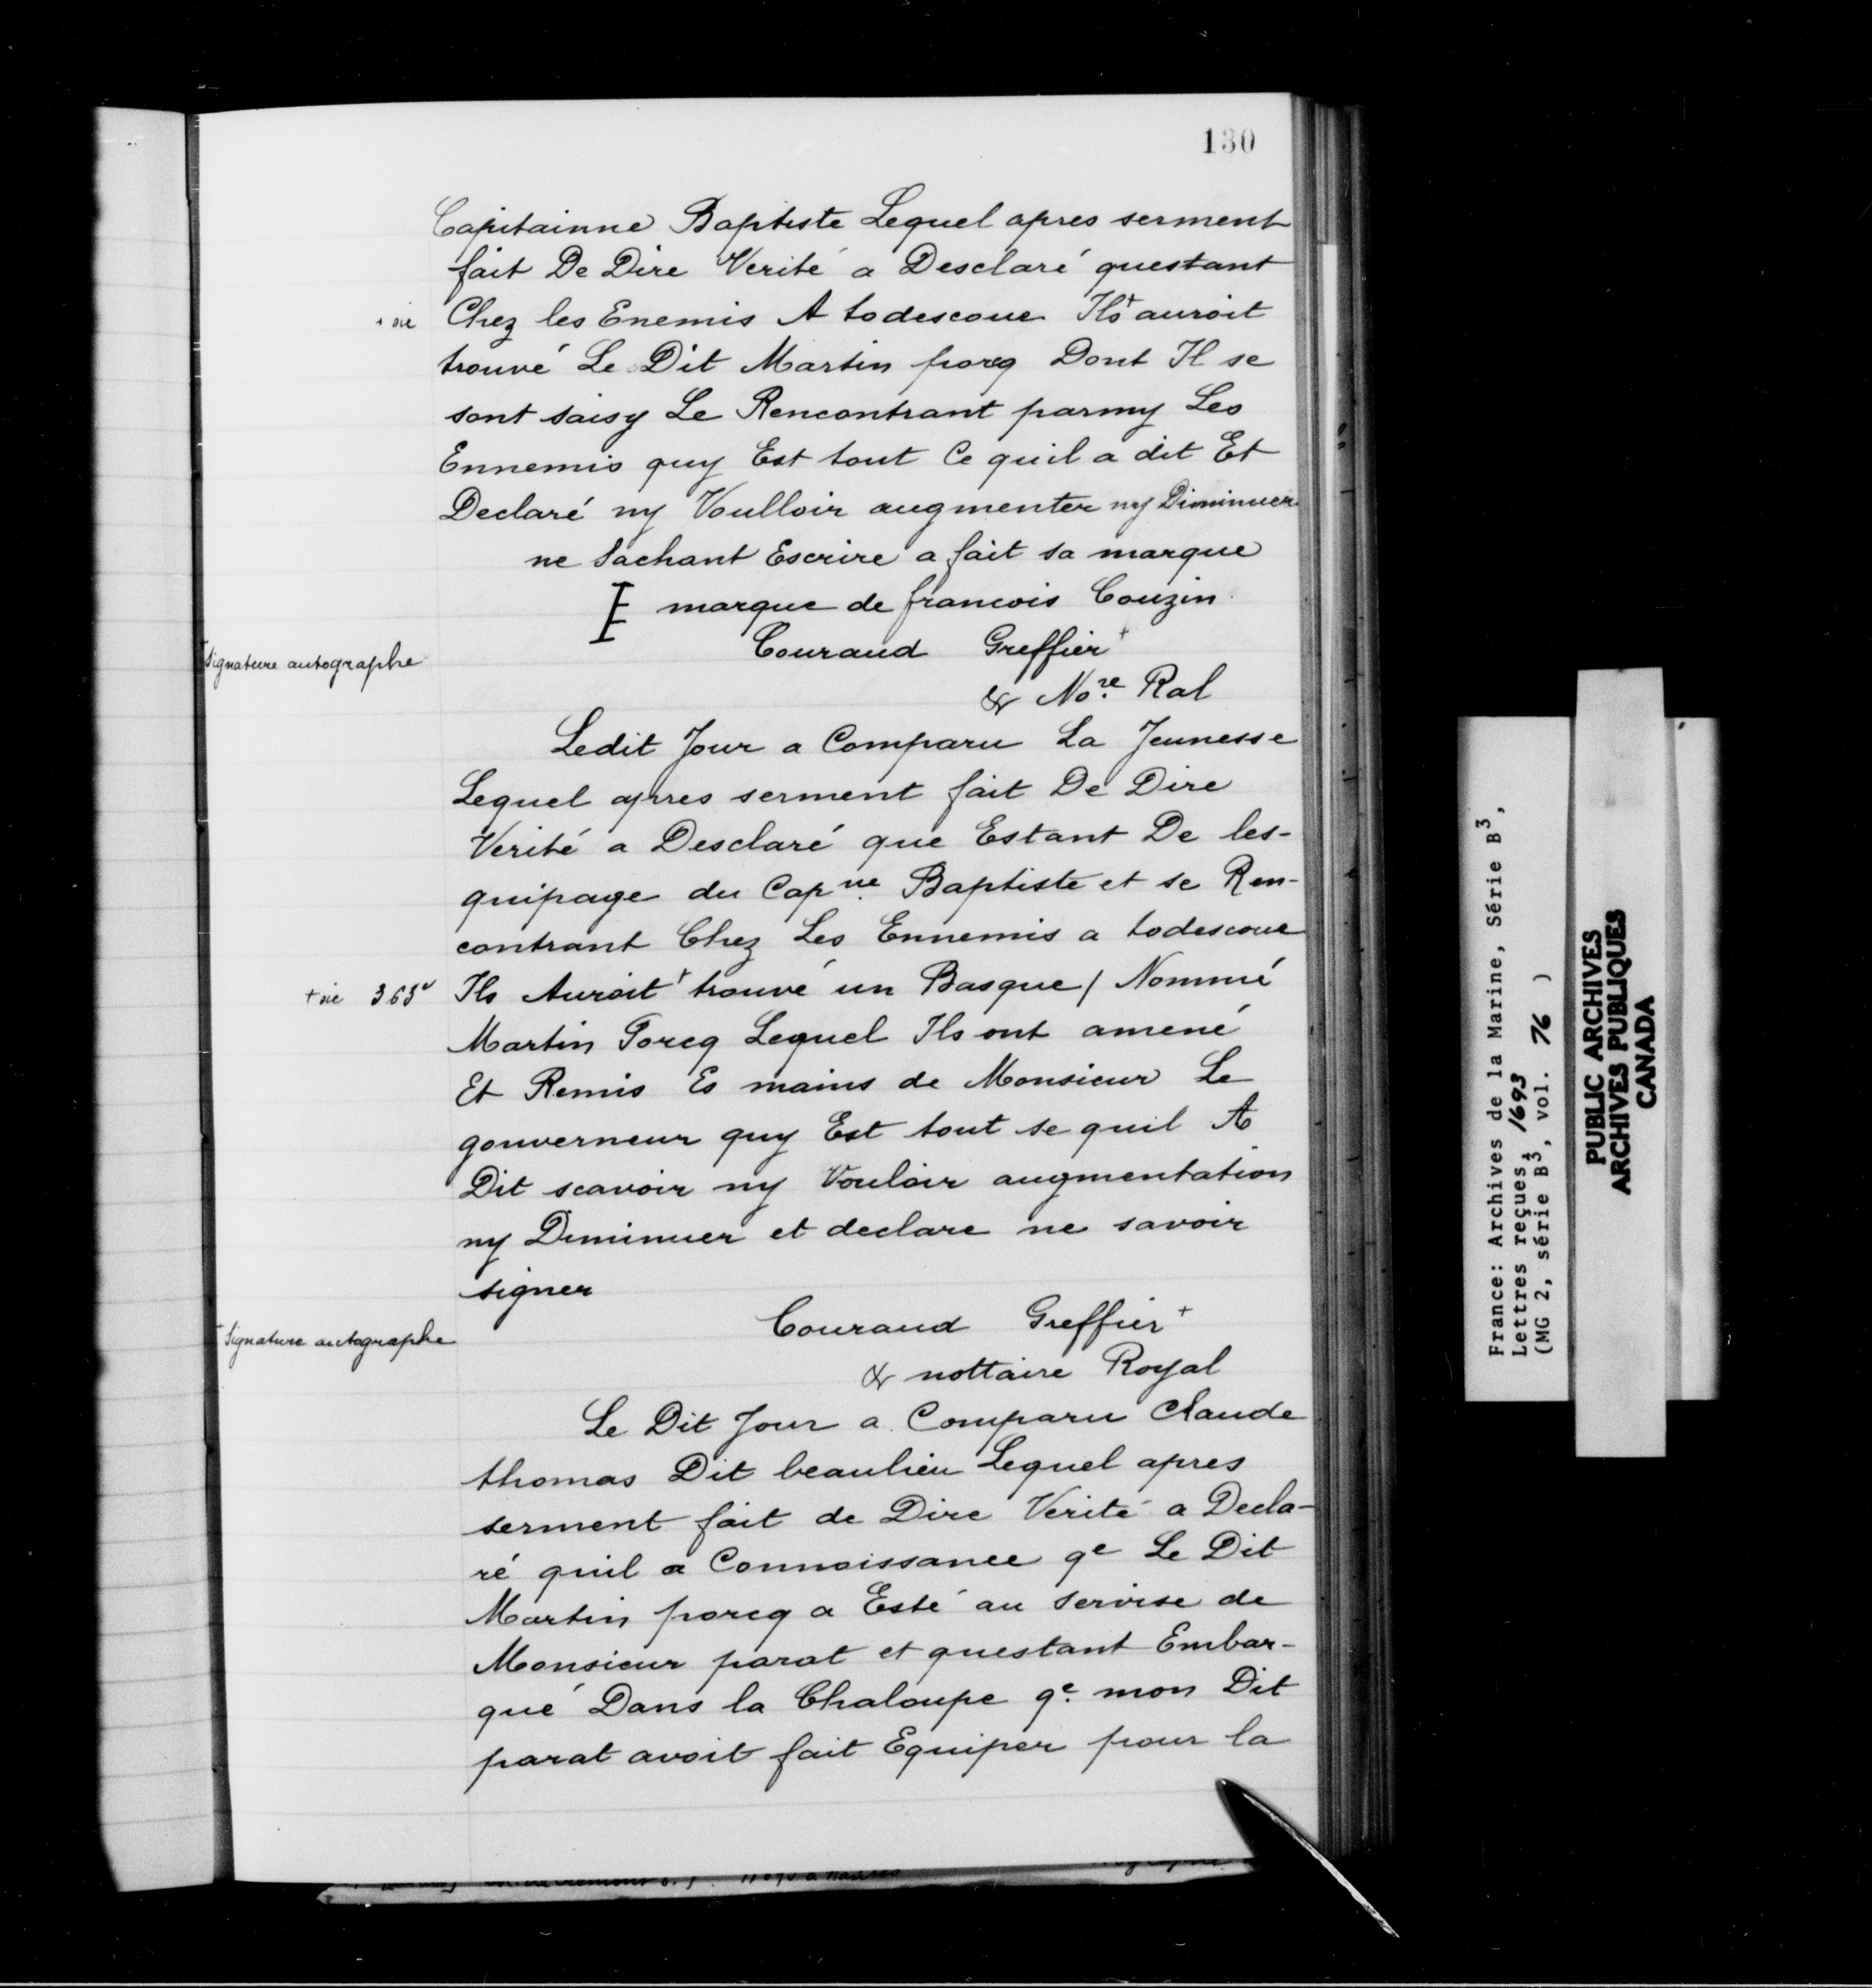 130
Capitainne Baptiste Lequel apres serment
fait De Dire Verité a Desclaré questant
+ sic Chez les Enemis A todescoue Ils+ auroit
trouvé Le Dit Martin porcq Dont Il se
sont saisy Le Rencontrant parmy Les
Ennemis quy Est tout Ce quil a dit Et
Declaré ny Voulloir augmenter ny Diminuer
ne Sachant Escrire a fait sa marque
marque de francois Couzin
Couraud Greffier+
+Signature autographe
& No.re Ral
Ledit Jour a Comparu La Jeunesse
Lequel apres serment fait De Dire
Verité a Desclaré que Estant De les-
quipage du Cap.ne Baptiste et se Ren-
contrant Chez Les Ennemis a todescoue
+ sic 363v Ils Auroit+ trouvé un Basque / Nommé
Martin Porcq Lequel Ils ont amené
Et Remis Es mains de Monsieur Le
gouverneur quy Est tout se quil A
Dit scavoir ny Vouloir augmentation
ny Diminuer et declare ne savoir
signer
Couraud Greffier+
+Signature autographe
& nottaire Royal
Le Dit Jour a Comparu Claude
thomas Dit beaulieu Lequel apres
serment fait de Dire Verité a Decla-
ré quil a Connoissance qe Le Dit
Martin porcq a Esté au servise de
Monsieur parat et questant Embar-
qué Dans la Chaloupe qe. mon Dit
parat avoit fait Equiper pour la
France: Archives de la Marine, Série B3,
Lettres reçues, 1693
(MG 2, série B3, vol. 76 )
PUBLIC ARCHIVES
ARCHIVES PUBLIQUES
CANADA